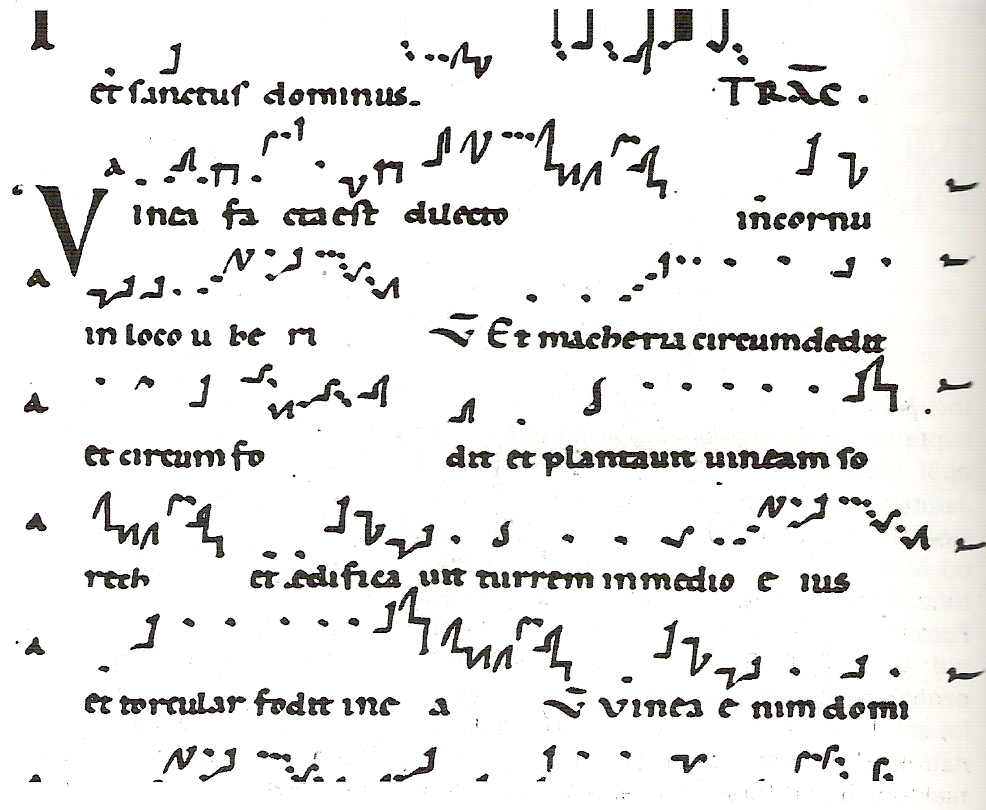 et sanctus dominus. TRAC̄.
Vinea facta est dilecto in cornu
in loco uberi V̄ Et macheria circumdedit
et circumfodit et plantauit uineam so
rech et edificauit turrem inmedio eius
et torcular fodit inea V̄ Vinea enim domi